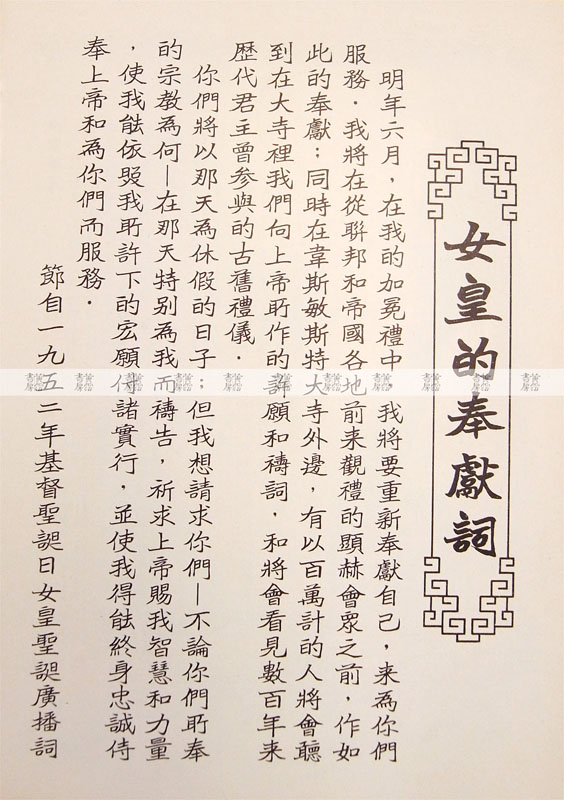 女皇的奉獻詞
明年六月，在我的加冕禮中，我將要重新奉獻自己，来為你們
服務．我將在從聨邦和帝國各地前来觀禮的顯赫會眾之前，作如
此的奉獻；同時在韋斯敏斯特大寺外邊，有以百萬計的人將會聽
到在大寺裡我們向上帝所作的許願和禱詞，和將會看見數百年来
歷代君主曾參與的古舊禮儀．
你們將以那天為休假的日子；但我想請求你們—不論你們所奉
的宗教為何—在那天特別為我而禱告，祈求上帝賜我智慧和力量
，使我能依照我所許下的宏願付諸實行，並使我得能終身忠誠侍
奉上帝和為你們而服務．
節自一九五二年基督聖誕日女皇聖誕廣播詞